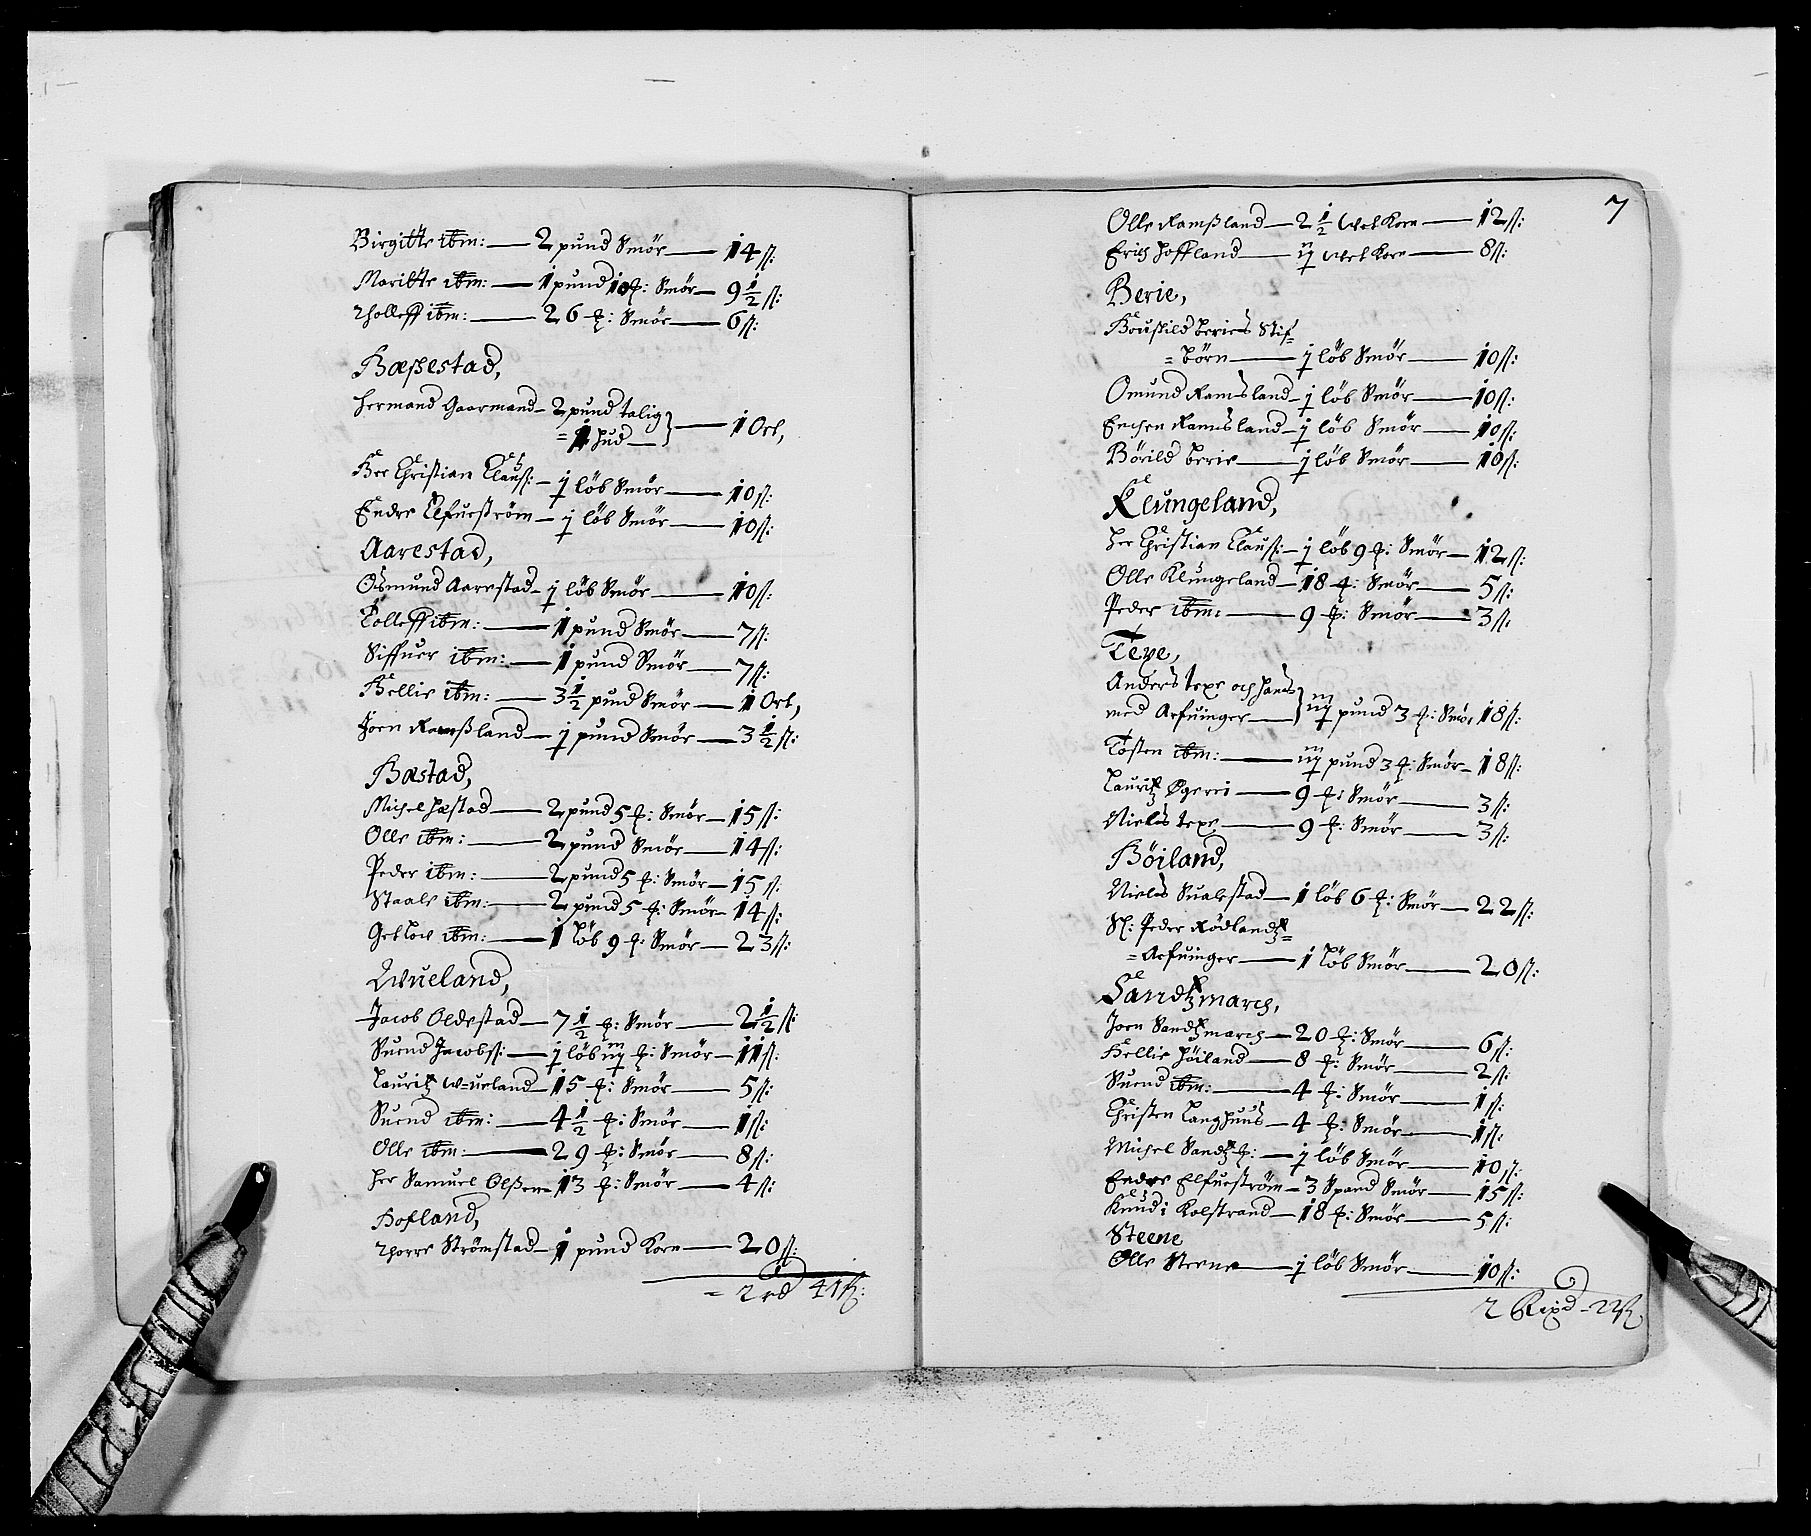 Birgitte ibm: — 2 pund Smör — 14 ß:
Maritte ibm: — 1 pund 10 ℔: Smör — 9 1/2 ß:
Tholleff ibm: — 26 ℔: Smör — 6 ß:
Hæßestad,
Hermand Gaarmand — 2 pund talig
= 1 hud — } — 1 Ort,
Her Christian Clauß: — j löb Smör — 10 ß:
Endre Elfueström — j löb Smör — 10 ß:
Aarestad,
Osmund Aarestad — j löb Smör — 10 ß:
Tolleff ibm: — 1 pund Smör — 7 ß:
Siffuer ibm: — 1 pund Smör — 7 ß:
Hellie ibm: — 3 1/2 pund Smör — 1 Ort,
Jorn Ramßland — j pund Smör — 3 1/2 ß:
Hæstad,
Michel Hæstad — 2 pund 5 ℔: Smör — 15 ß:
Olle ibm: — 2 pund Smör — 14 ß:
Peder ibm: — 2 pund 5 ℔: Smör — 15 ß:
Staale ibm: — 2 pund 5 ℔: Smör — 14 ß:
Getlov ibm: — 1 löb 9 ℔: Smör — 23 ß:
Wueland,
Jacob Oldestad — 7 1/2 ℔: Smör — 2 1/2 ß:
Suend Jacobß: — j löb iij ℔: Smör — 11 ß:
Lauritz Wueland — 15 ℔: Smör — 5 ß:
Suend ibm: — 4 1/2 ℔: Smör — 1 ß:
Olle ibm: — 29 ℔: Smör — 8 ß:
Her Samuel Olßen — 13 ℔: Smör — 4 ß:
Hofland,
Thorre Strömstad — 1 pund Korn — 20 ß:
= 2 rd 41 ß:
7
Olle Ramßland — 2 1/2 Wet Korn — 12 ß:
Erich Hoffland — ij Wet Korn — 8 ß:
Berie,
Bouffild Beries Stif=
=börn — j löb Smör — 10 ß:
Omund Ramsland — j löb Smör — 10 ß:
Enchen Ramsland — j löb Smör — 10 ß:
Börild Berie — j löb Smör — 10 ß:
Klungeland,
Her Christian Clauß: — j löb 9 ℔: Smör — 12 ß:
Olle Klungeland — 18 ℔: Smör — 5 ß:
Peder ibm: — 9 ℔: Smör — 3 ß:
Texe,
Anders texe och hans
med Arfuinger — } iij pund 3 ℔: Smör 18 ß:
Tosten ibm: — iij pund 3 ℔: Smör — 18 ß:
Lauritz Øgerei — 9 ℔: Smör — 3 ß:
Niels texe — 9 ℔: Smör — 3 ß:
Höiland,
Niels Sualestad — 1 löb 6 ℔: Smör — 22 ß:
Sl: Peder Rödlandtz=
=Arfuinger — 1 löb Smör — 20 ß:
Sandtzmarch,
Jorn Sandtzmarch — 20 ℔: Smör — 6 ß:
Hellie Höiland — 8 ℔: Smör — 2 ß:
Suend ibm: — 4 ℔: Smör — 1 ß:
Christen Langhuus — 4 ℔: Smör — 1 ß:
Michel Sandtz ℔: — j löb Smör — 10 ß:
Endre Elfueström — 3 Spand Smör — 15 ß:
Knud i Kolstrand — 18 ℔: Smör — 5 ß:
Steene
Olle Steene — j löb Smör — 10 ß:
2 Rixd - 22 ß